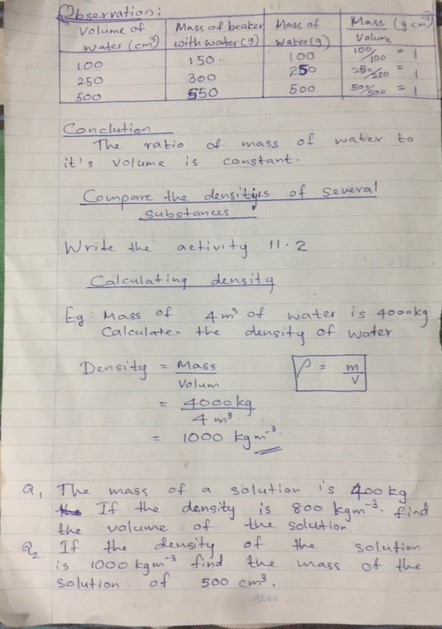 Observation:
Volume of water (cm³) | Mass of beaker with water (g) | Mass of water (g) | Mass / Volume (g cm⁻³)
100 | 150. | 100 | 100/100 = 1
250 | 300 | 250 | 250/250 = 1
500 | 550 | 500 | 500/500 = 1
Conclution
The ratio of mass of water to
it's volume is constant.
Compare the densities of several
substances
Write the activity 11.2
Calculating density
Eg: Mass of 4 m³ of water is 4000kg
Calculate the density of water
Density = Mass / Volum
ρ = m/V
= 4000kg / 4 m³
= 1000 kgm⁻³
Q1 The mass of a solution is 400 kg
If the density is 800 kgm⁻³. find
the volume of the solution
Q2 If the density of the solution
is 1000 kgm⁻³ find the mass of the
solution of 500 cm³.